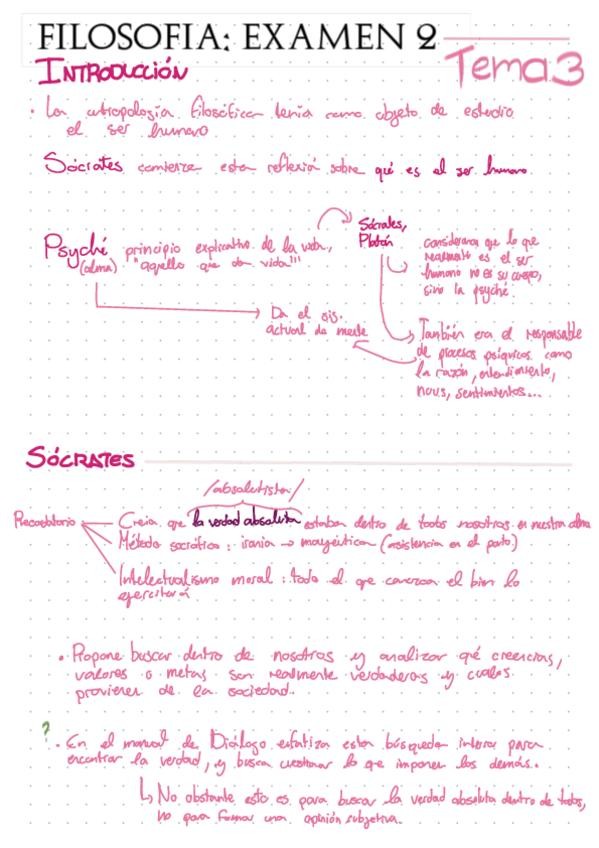 FILOSOFIA: EXAMEN 2
Tema 3
INTRODUCCIÓN
· La antropología filosófica tenía como objeto de estudio
el ser humano
Sócrates comienza esta reflexión sobre qué es el ser humano.
Psyché principio explicativo de la vida,
(alma) "aquello que da vida"
Sócrates,
Platón
consideraron que lo que
realmente es el ser
humano no es su cuerpo,
sino la psyché.
Da el sis.
actual de mente
También era el responsable
de procesos psíquicos como
la razón, entendimiento,
nous, sentimientos...
SÓCRATES
/absolutista/
Recordatorio
Creía que la verdad absoluta estaba dentro de todos nosotros en nuestra alma
Método socrático: ironía → mayéutica (asistencia en el parto)
Intelectualismo moral: todo el que conozca el bien lo
ejercitará
· Propone buscar dentro de nosotros y analizar qué creencias,
valores o metas son realmente verdaderas y cuales
provienen de la sociedad.
? · En el manual de Diálogo enfatiza esta búsqueda interna para
encontrar la verdad, y busca cuestionar lo que imponen los demás.
↳ No obstante esto es para buscar la verdad absoluta dentro de todos,
no para formar una opinión subjetiva.